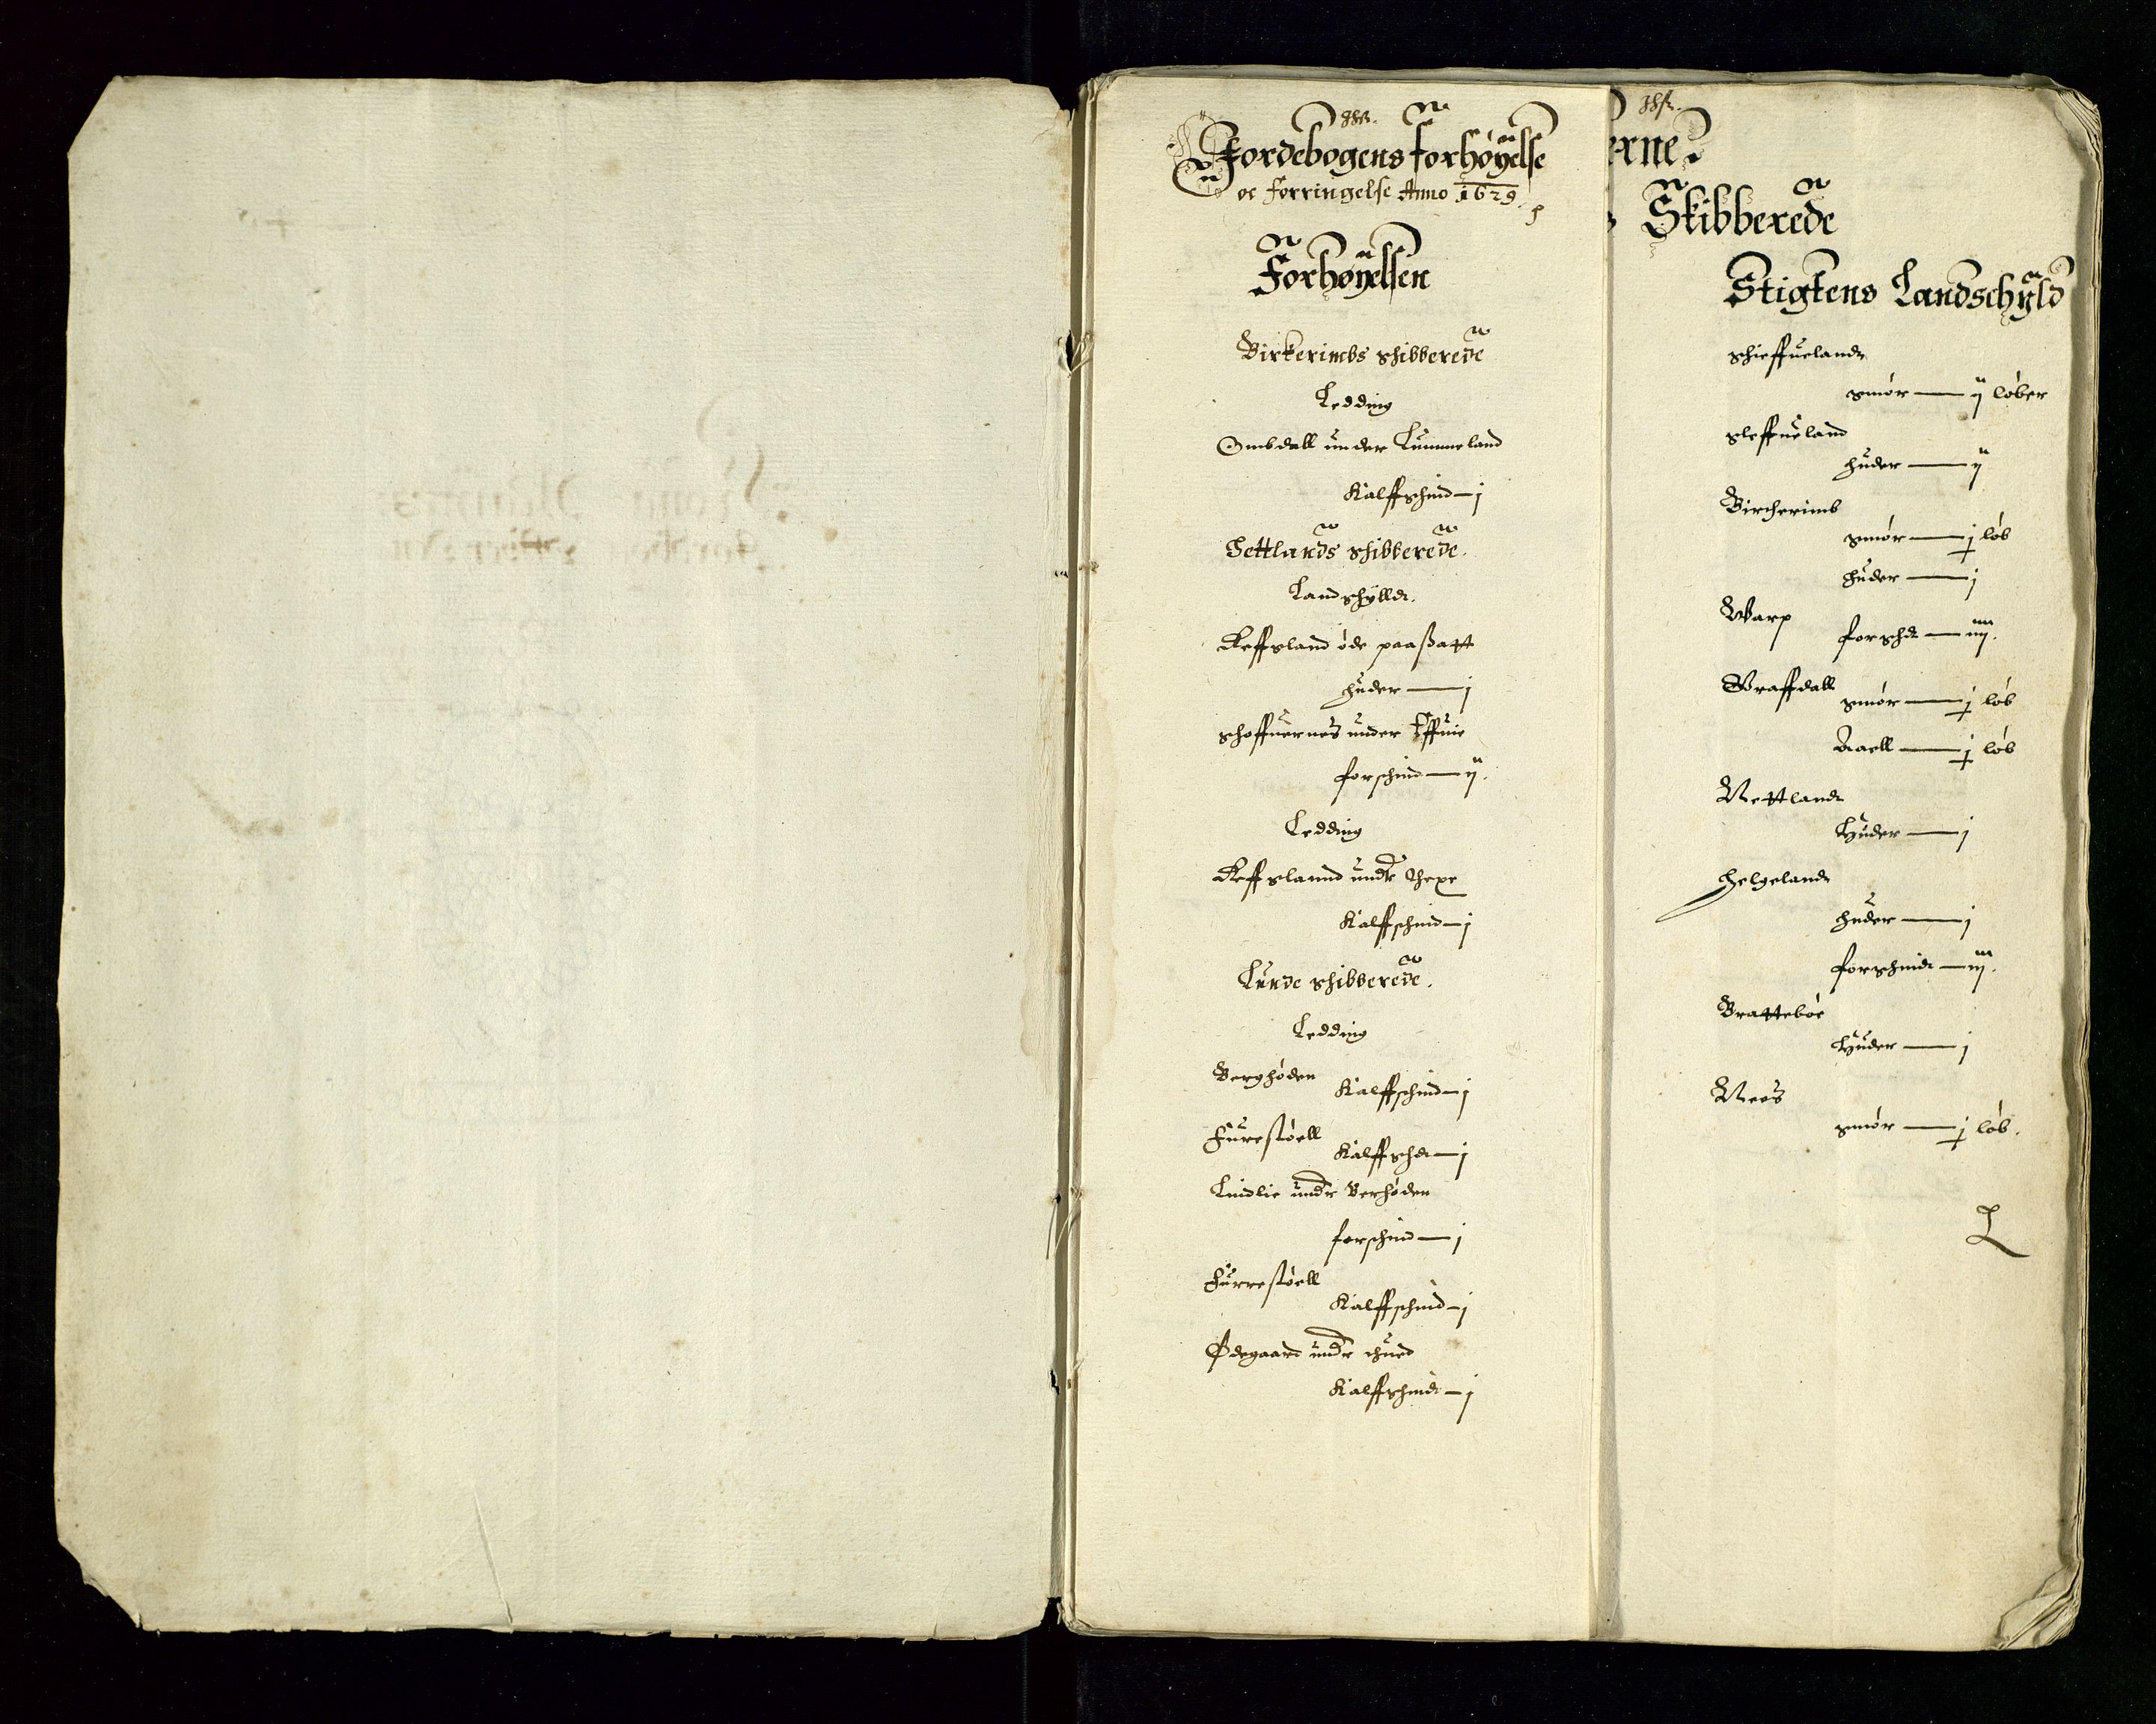 Jordebogens forhøyelse
oc forringelse Anno 1629.
Forhøyelsen
Birkerimbs schibberede
Ledding
Ombdall under Lummeland
Kalffschind — j
Hettlands schibberede.
Landschylld.
Reffsland øde paasatt
huder — j
schoffuernes under
forschind — ij.
Ledding
Reffslannd undr
Kalffschind — j
Lunde schibberede.
Ledding
Berghøden
Kalffschind — j
Furestøell
Kalffschd — j
Lindlie undr Berhøden
forschind — j
Furrestøell
Kalffschind — j
Ødegaard undr hued
Kalffschind — j
erne
Skibberede
Stigtens Landschyld
schieffueland
smør — ij løber
sleffueland
huder — ij
Bircherimb
smør — j løb
huder — j
Warp
forschd — iiij.
Graffdall
smør — j løb
Aaell — j løb
Nettland
Huder — j
Helgeland
huder — j
forschind — iij.
Brattebøe
Huder — j
Nees
smør — j løb.